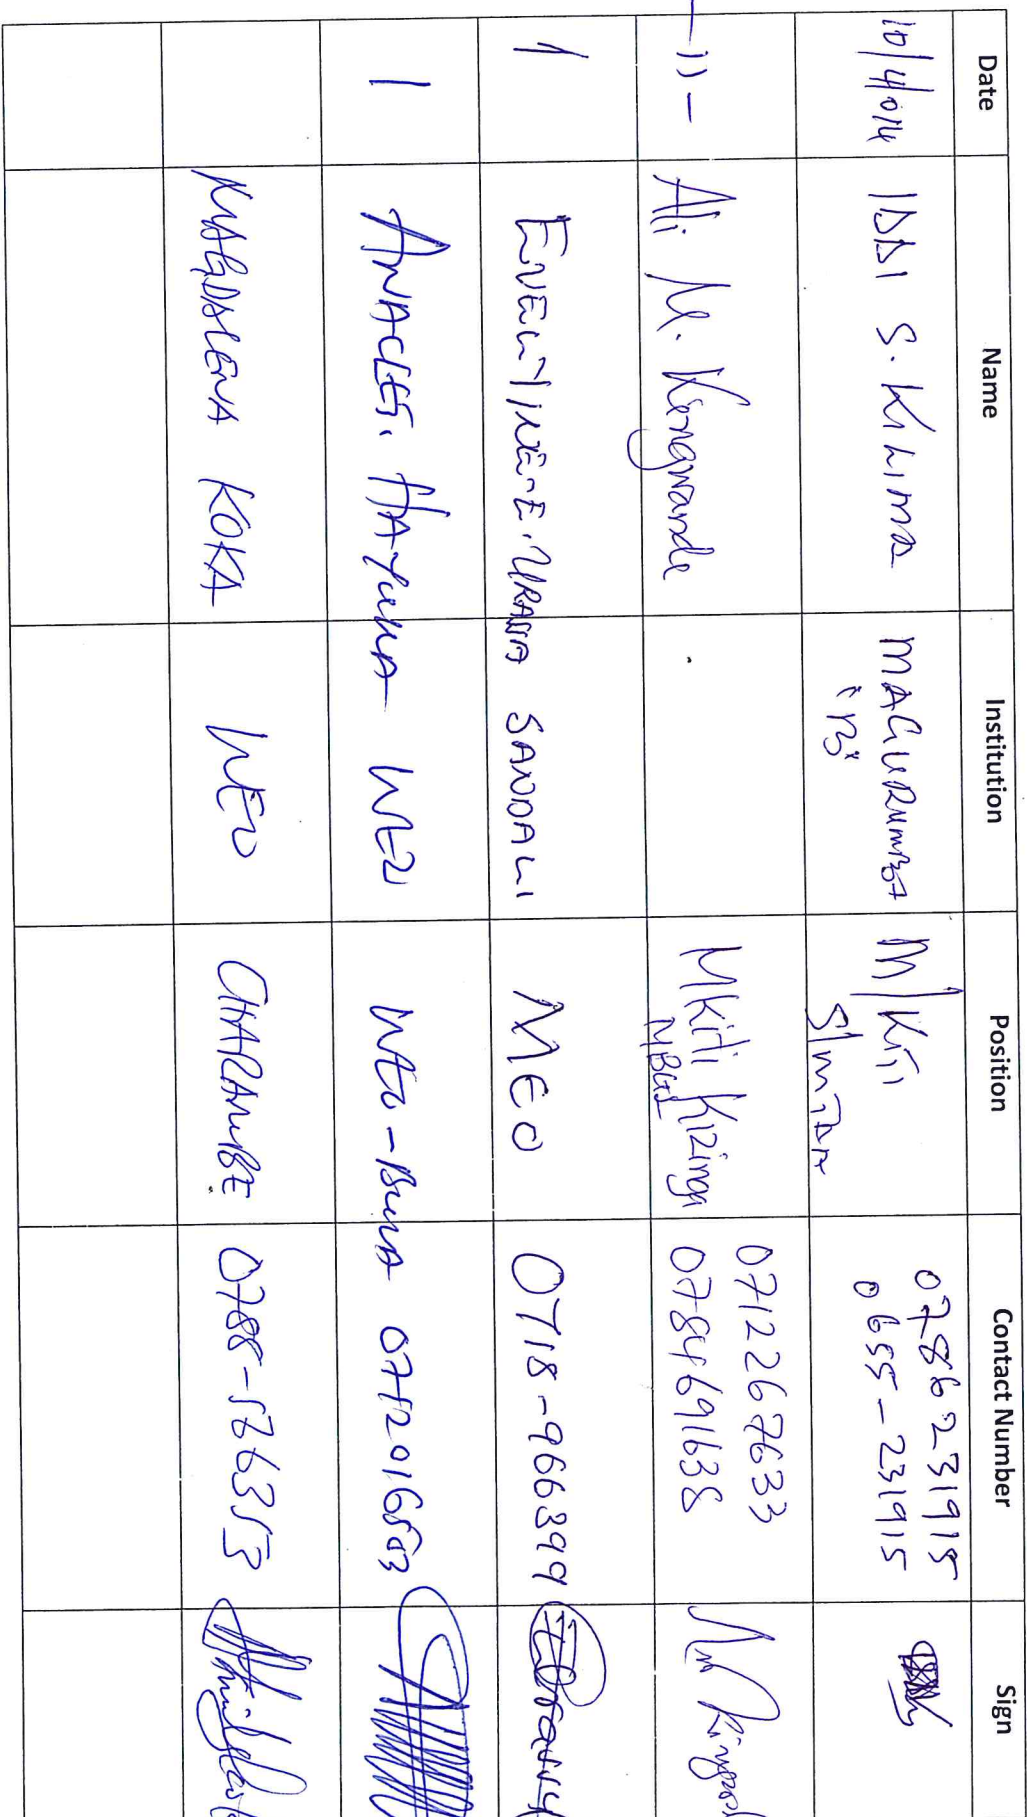 Date Name Institution Position Contact Number Sign
10/4/014 IDDI S. KILIMA MAGURUMBA M/KITI 0786231915
S/MTAA 0655-231915
-11- Ali M. Kingwande Mkiti Kizinga 0712267633
MBGL 0784691638
EVELYINE-E.URASSA SANDALI MEO 0718-966399
ANACLET. HAYUMA WEO WEO-BUZA 0712016563
MAGDALENA KOKA WEO CHARAMBE 0788-563653